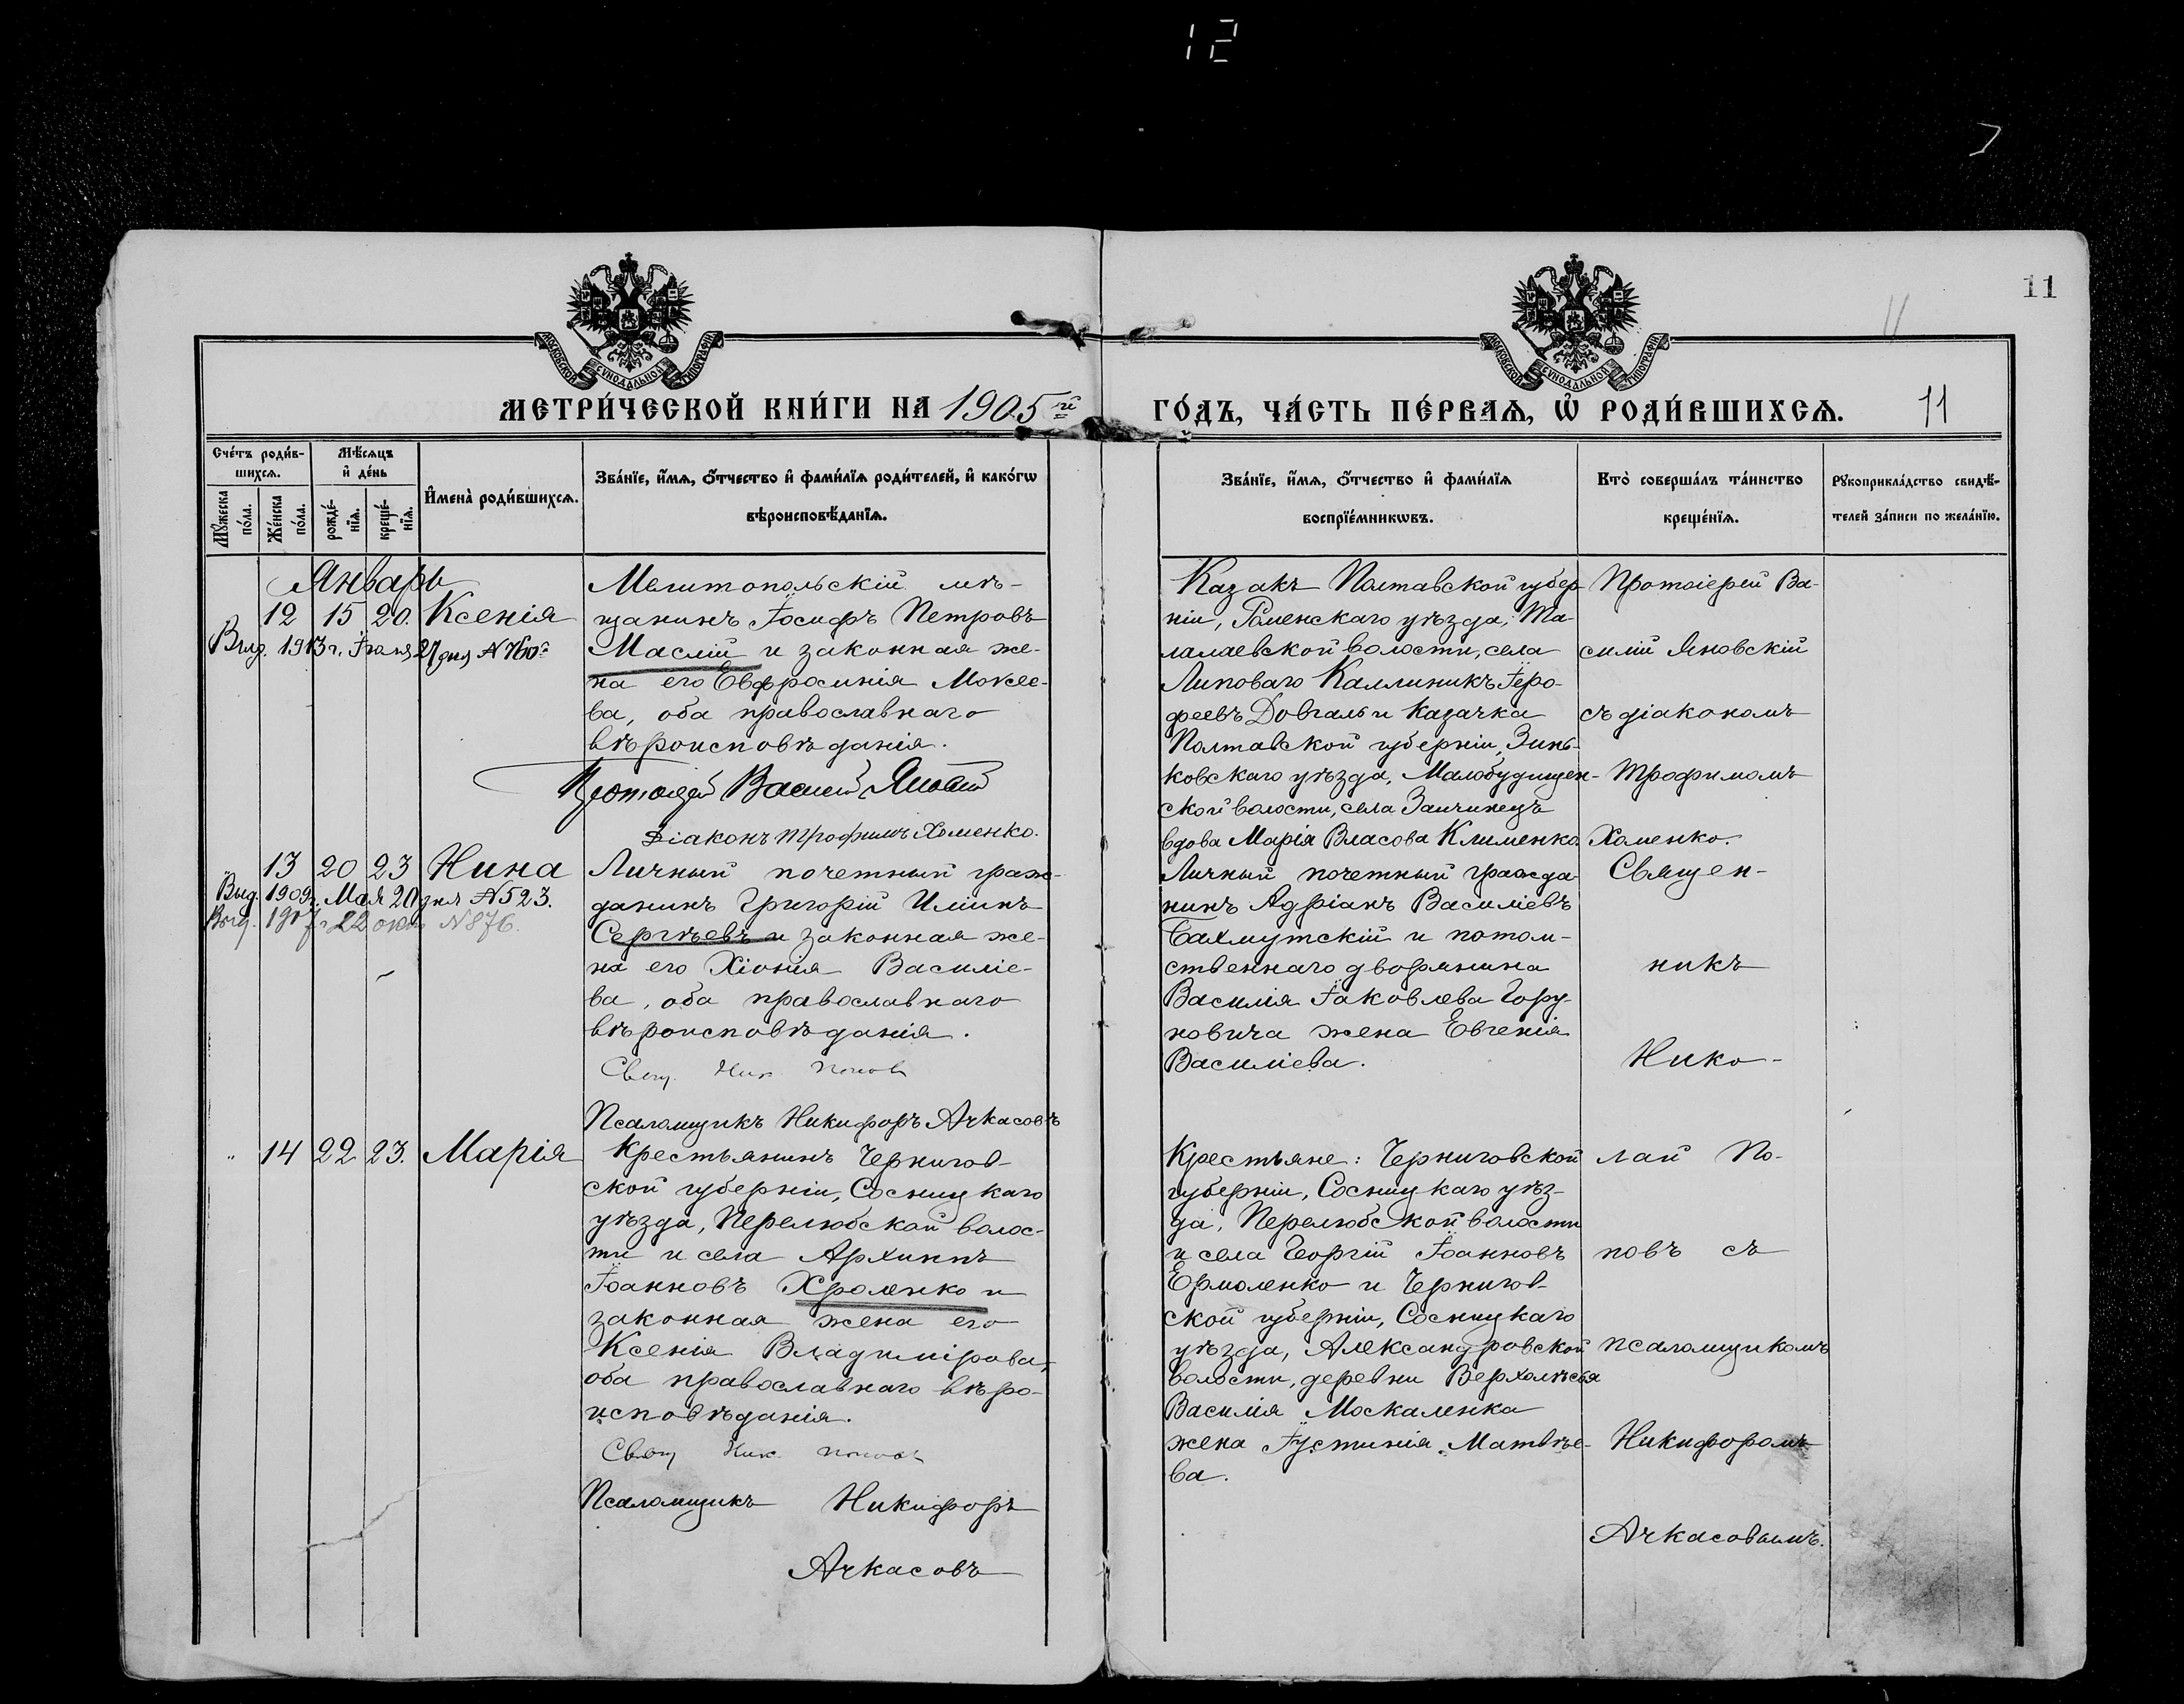 12
11
11
МОСКОВСКОЙ СѴНОДАЛЬНОЙ ТИПОГРАФІИ
МОСКОВСКОЙ СѴНОДАЛЬНОЙ ТИПОГРАФІИ
МЕТРИ́ЧЕСКОЙ КНИ́ГИ НА 1905й ГО́ДЪ, ЧА́СТЬ ПЕ́РВАЯ, Ѡ҆ РОДИ́ВШИХСЯ. 11
Сче́тъ роди́в-
шихсѧ.
Мꙋ́жеска по́ла.
Же́нска по́ла.
Мѣ́сѧцъ
и҆ де́нь
рожде́-
нїѧ.
креще́-
нїѧ.
И҆мена̀ роди́вшихсѧ.
Зва́нїе, и҆́мѧ, ѻ҆́тчество и҆ фами́лїѧ роди́телей, и҆ како́гѡ
вѣроисповѣ́данїѧ.
Зва́нїе, и҆́мѧ, ѻ҆́тчество и҆ фами́лїѧ
воспрїе́мникѡвъ.
Кто̀ соверша́лъ та́инство
креще́нїѧ.
Рꙋкоприкла́дство свидѣ́-
телей за́писи по жела́нїю.
Январь
12 15 20. Ксенія
Выд. 1913 г. Іюня 27 дня № 760
Мелитопольскій мѣ-
щанинъ Іосифъ Петровъ
Маслій и законная же-
на его Евфросинія Мокее-
ва, оба православнаго
вѣроисповѣданія.
Протоіерей Василій Яновскій
Діаконъ Трофимъ Хоменко.
Казакъ Полтавской губер
ніи, Роменскаго уѣзда, Та-
лалаевской волости, села
Липоваго Каллиникъ Іеро-
феевъ Довгаль и казачка
Полтавской губерніи, Зинь-
ковскаго уѣзда, Малобудищен-
ской волости, села Заичинецъ
вдова Марія Власова Клименко.
Протоіерей Ва-
силій Яновскій
съ діакономъ
Трофимомъ
Хоменко.
13 20 23 Нина
Выд. 1909 г. Мая 20 дня № 523.
Выд. 1917 г 22 окт № 876.
Личный почетный граж-
данинъ Григорій Иліинъ
Сергѣевъ и законная же-
на его Хіонія Василіе-
ва, оба православнаго
вѣроисповѣданія.
Свящ. Ник Поповъ
Псаломщикъ Никифоръ Ачкасовъ
Личный почетный гражда-
нинъ Адріанъ Василіевъ
Бахмутскій и потом-
ственнаго дворянина
Василія Іаковлева Гору-
новича жена Евгенія
Василіева.
Священ-
никъ
Нико-
14 22 23. Марія
Крестьянинъ Чернигов-
ской губерніи, Сосницкаго
уѣзда, Перелюбской волос-
ти и села Архиппъ
Іоанновъ Хроленко и
законная жена его
Ксенія Владимірова,
оба православнаго вѣро-
исповѣданія.
Свящ Ник Поповъ
Псаломщикъ Никифоръ
Ачкасовъ
Крестьяне: Черниговской
губерніи, Сосницкаго уѣз-
да, Перелюбской волости
и села Георгій Іоанновъ
Ермоленко и Чернигов-
ской губерніи, Сосницкаго
уѣзда, Александровской
волости, деревни Верхолѣсья
Василія Москаленка
жена Іустинія Матвѣе-
ва.
лай По-
повъ съ
псаломщикомъ
Никифоромъ
Ачкасовымъ.